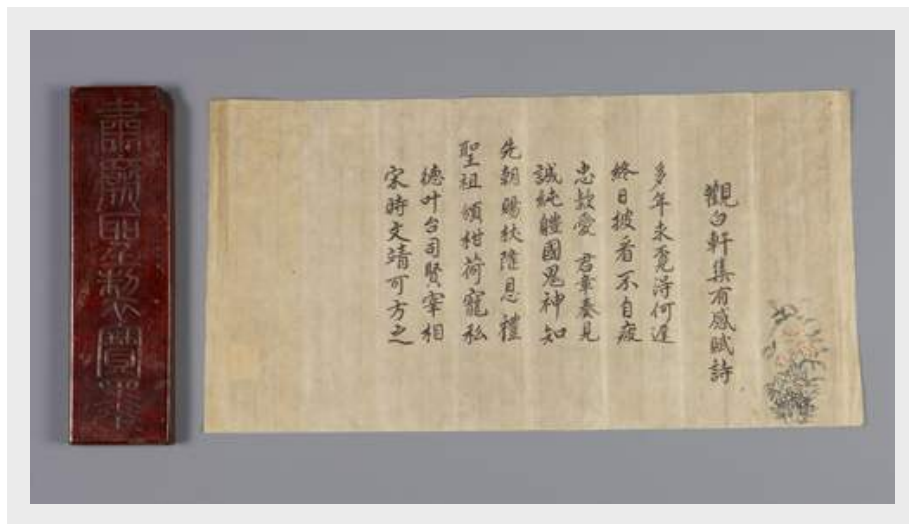 觀白軒集有感賦詩
多年未覓得何遲
終日披看不自疲
忠款愛 君章奏見
誠純體國鬼神知
先朝賜杖隆恩禮
聖祖頒柑荷寵私
德叶台司賢宰相
宋時文靖可方之
肅廟 製寶墨